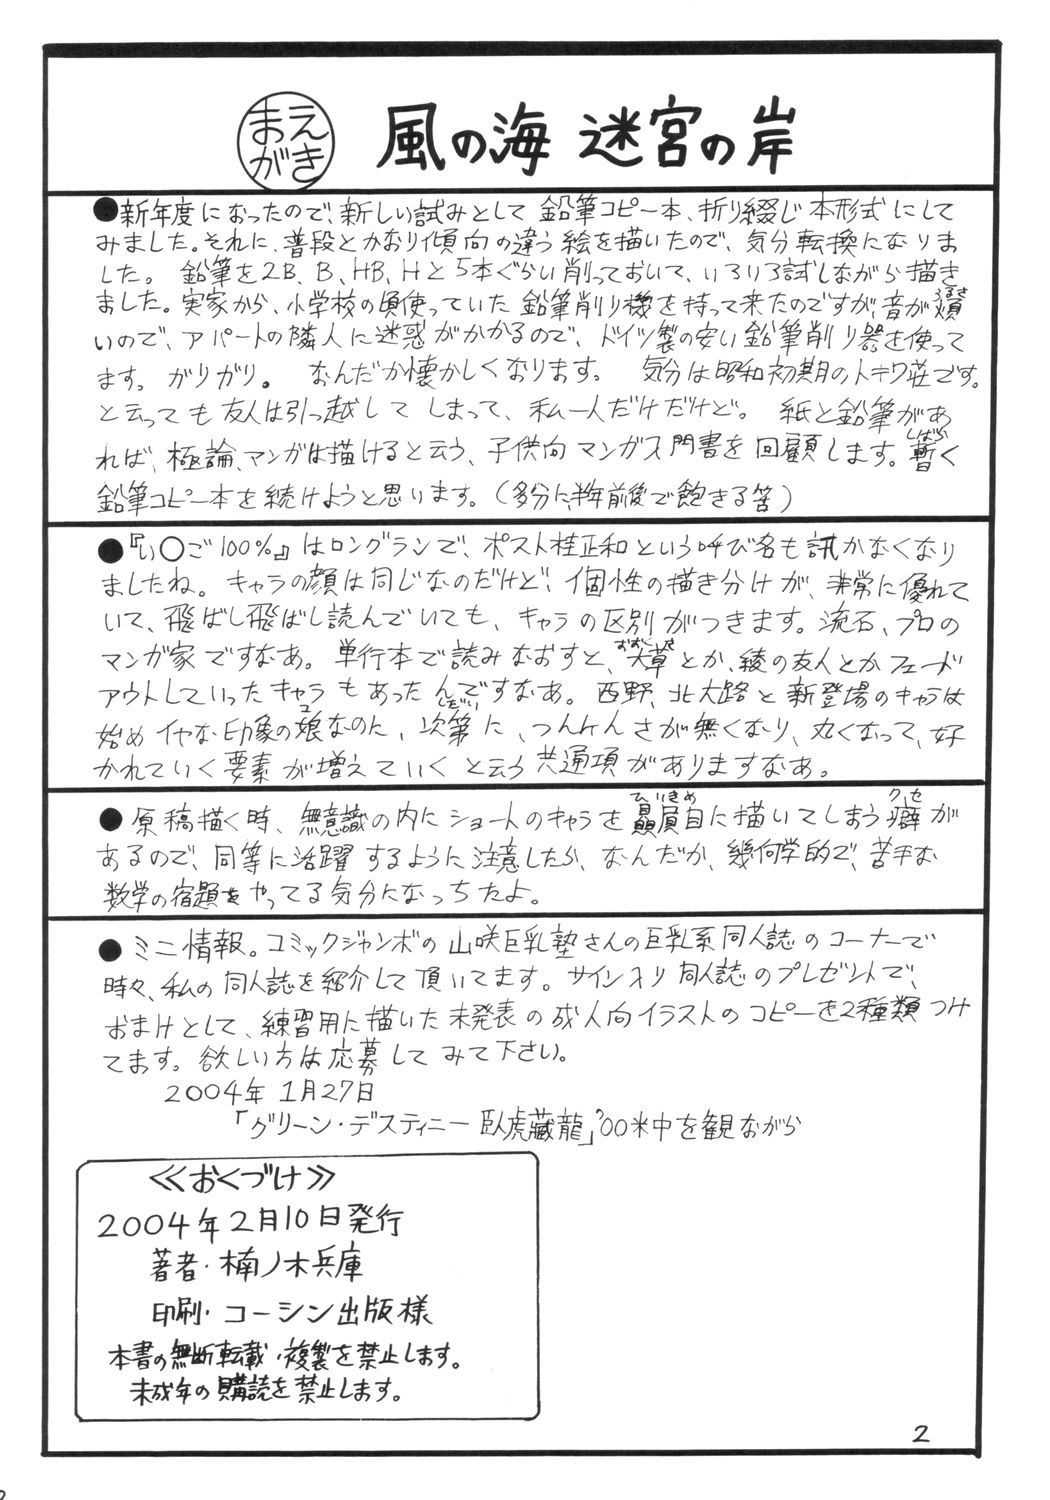 まえがき 風の海 迷宮の岸
●新年度になったので、新しい試みとして 鉛筆コピー本、折り綴じ本形式にして
みました。それに、普段とかなり傾向の違う絵を描いたので、気分転換になりま
した。 鉛筆を2B、B、HB、Hと5本ぐらい削っておいて、いろいろ試しながら描き
ました。実家から、小学校の頃使っていた鉛筆削り機を持って来たのですが、音が煩
いので、アパートの隣人に迷惑がかかるので、ドイツ製の安い鉛筆削り器を使って
ます。ガリガリ。 なんだか懐かしくなります。 気分は昭和初期のトキワ荘です。
と云っても友人は引っ越してしまって、私一人だけだけど。 紙と鉛筆があ
れば、極論、マンガは描けると云う、子供向マンガ入門書を回顧します。暫く
鉛筆コピー本を続けようと思います。(多分に半年前後で飽きる筈)
●『い○ご100%』はロングランで、ポスト桂正和という呼び名も訊かなくなり
ましたね。キャラの顔は同じなのだけど、個性の描き分けが、非常に優れて
いて、飛ばし飛ばし読んでいても、キャラの区別がつきます。流石、プロの
マンガ家ですなあ。単行本で読みなおすと、大草とか、綾の友人とかフェード
アウトしていったキャラもあったんですなあ。西野、北大路と新登場のキャラは
始めイヤな印象の娘なのに、次第に、つんけんさが無くなり、丸くなって、好
かれていく要素が増えていくと云う共通項がありますなあ。
●原稿描く時、無意識の内にショートのキャラを贔屓目に描いてしまう癖が
あるので、同等に活躍するように注意したら、なんだか、幾何学的で、苦手な
数学の宿題をやってる気分になっちたよ。
●ミニ情報。コミックジャンボの山咲巨乳塾さんの巨乳系同人誌のコーナーで
時々、私の同人誌を紹介して頂いてます。サイン入り同人誌のプレゼントで、
おまけとして、練習用に描いた未発表の成人向イラストのコピーを2種類つけ
てます。欲しい方は応募してみて下さい。
2004年1月27日
「グリーン・デスティニー 臥虎藏龍」'00米中を観ながら
≪おくづけ≫
2004年2月10日発行
著者・楠ノ木兵庫
印刷・コーシン出版様
本書の無断転載・複製を禁止します。
未成年の購読を禁止します。
2